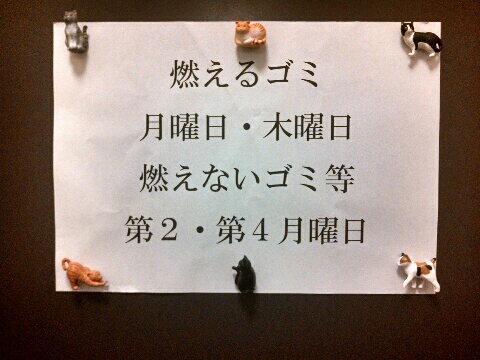 燃えるゴミ
月曜日・木曜日
燃えないゴミ等
第２・第４月曜日